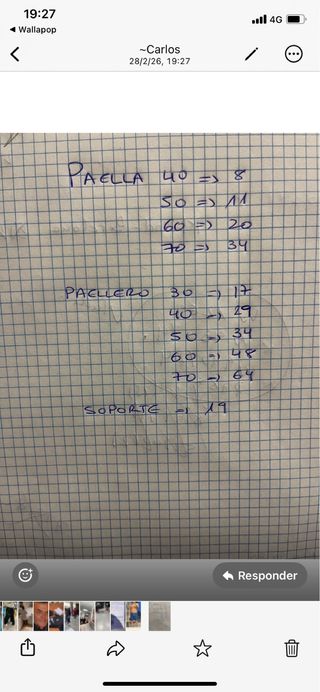 19:27
4G
◀ Wallapop
~Carlos
28/2/26, 19:27
PAELLA 40 => 8
50 => 11
60 => 20
70 => 34
PAELLERO 30 => 17
40 => 29
50 => 34
60 => 48
70 => 64
SOPORTE => 19
Responder